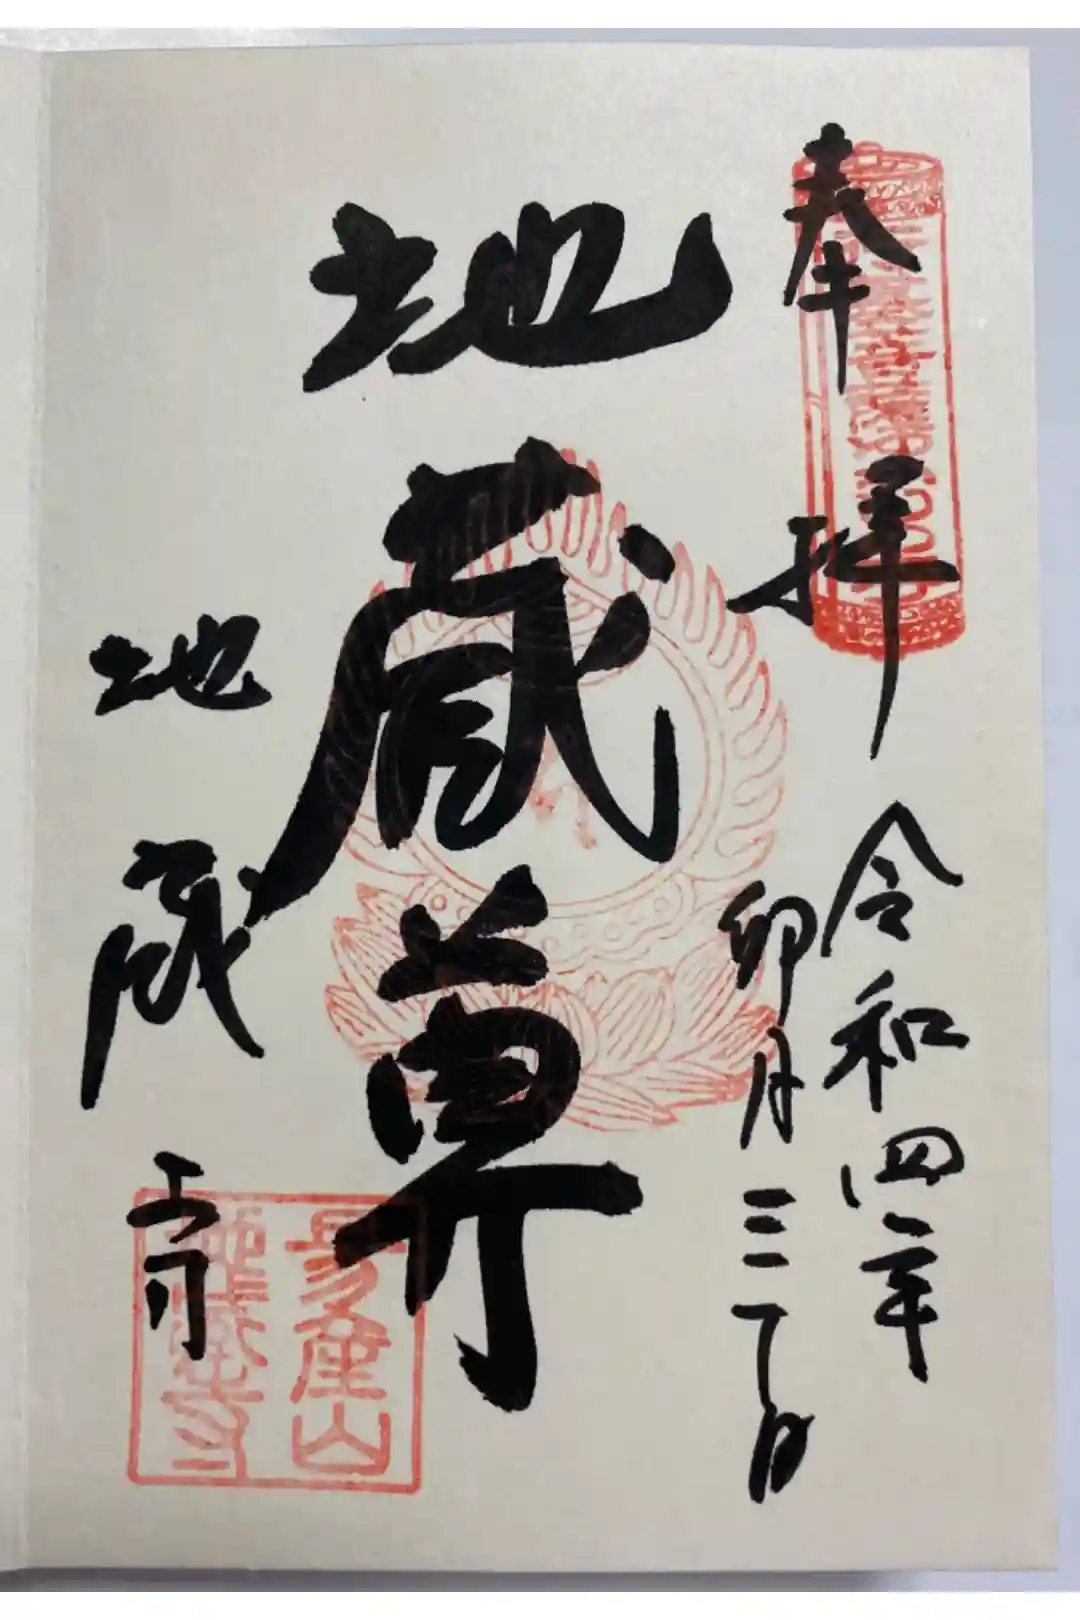 奉拝
令和四年
卯月三十日
地蔵尊
地蔵寺
易産山
地蔵寺